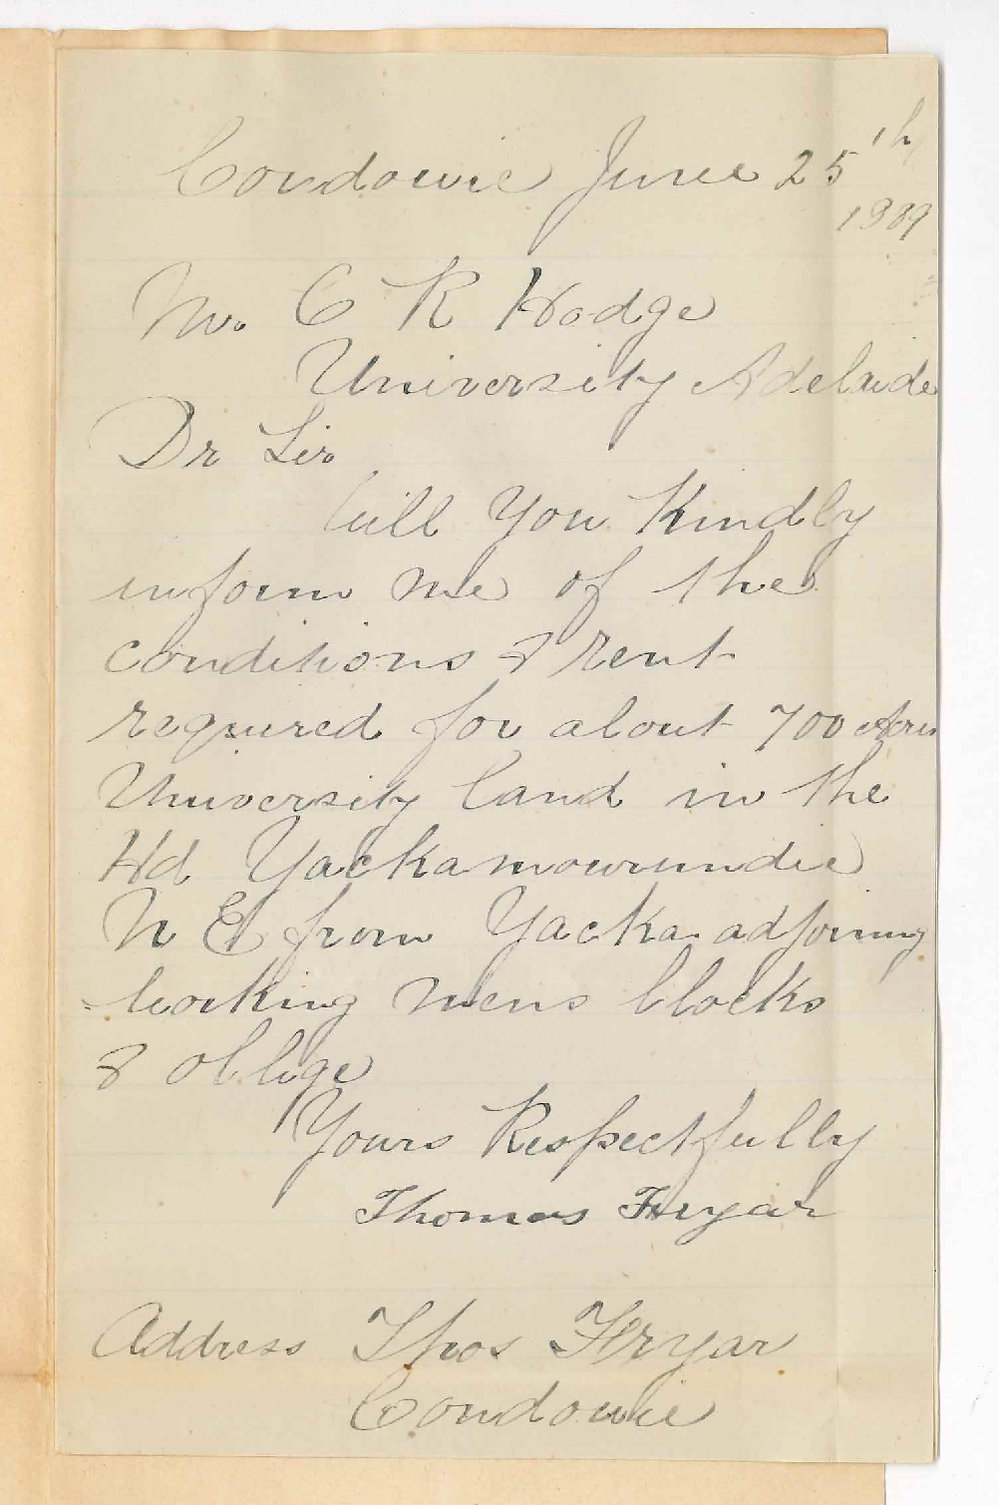 Condowie June 25th
1889
Mr. C R Hodge
University Adelaide
Dr Sir
Will you Kindly
inform me of the
conditions & rent
required for about 700 Acres
University land in the
Hd Yackamoorundie
N E from Yacka adjoining
working mens blocks
& oblige
Yours Respectfully
Thomas Fryar
Address Thos Fryar
Condowie